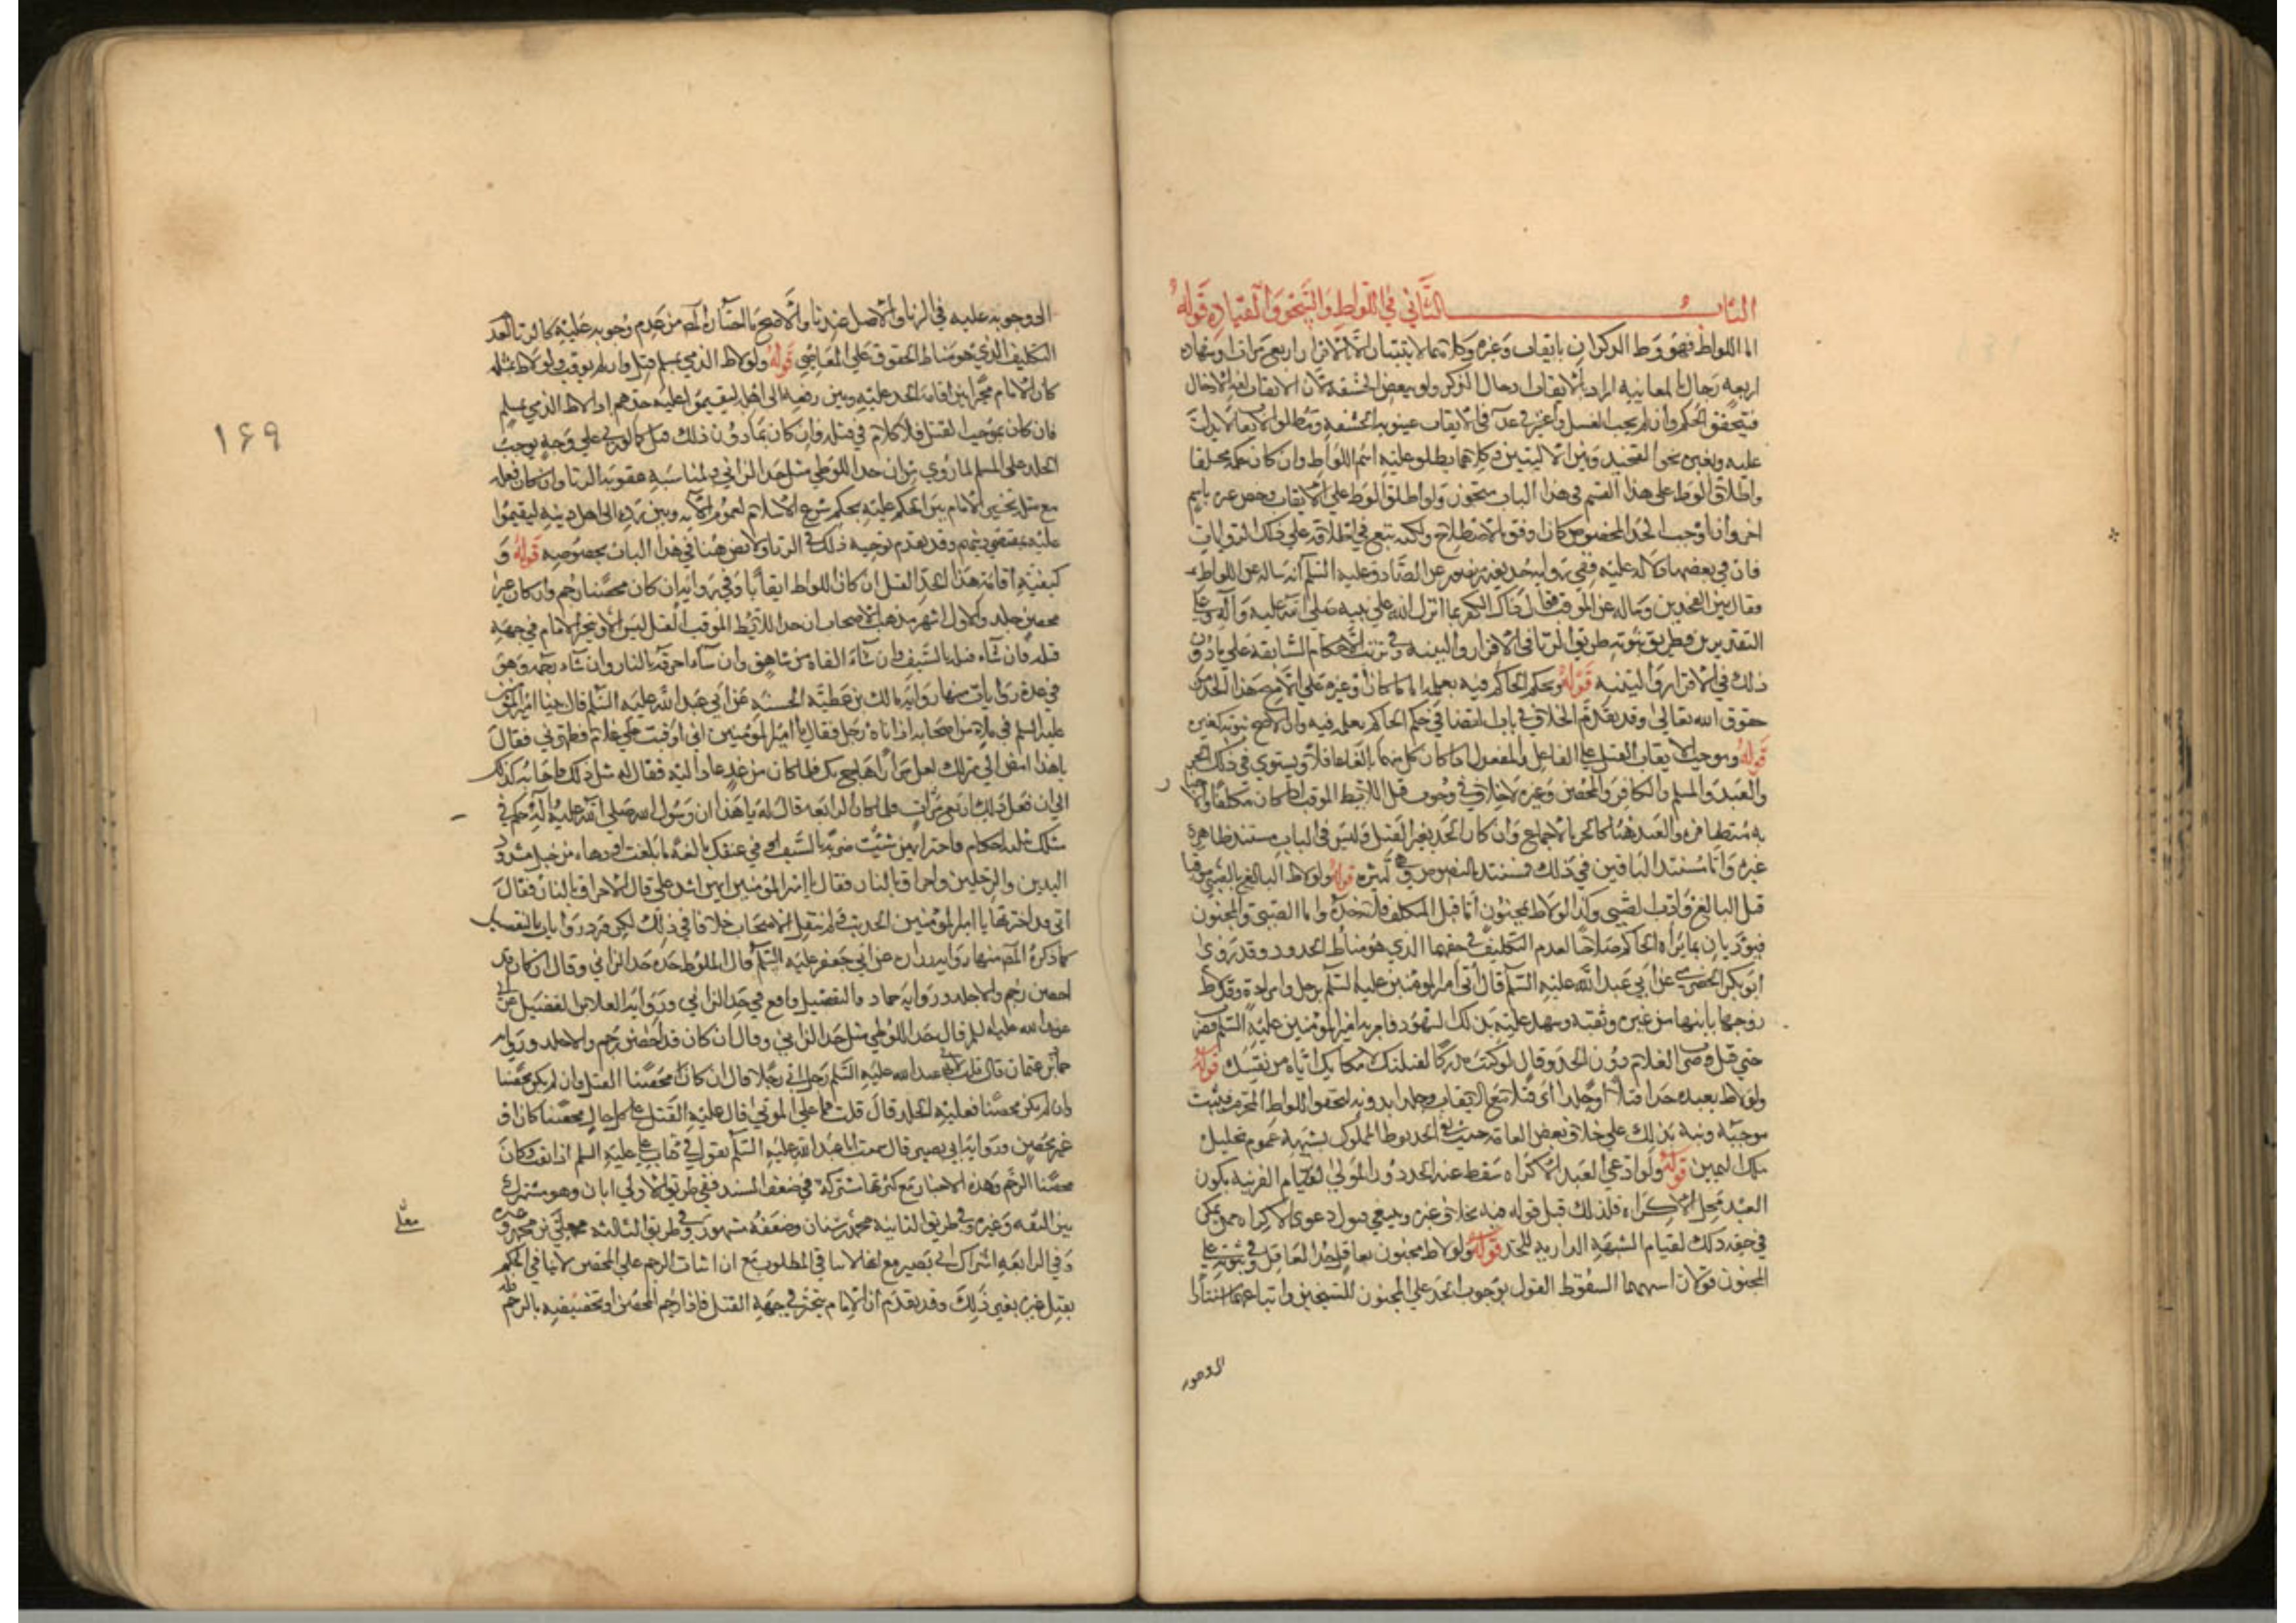 الباب الثاني في اللواط والسحق والقيادة قوله
اما اللواط فهو وطء الذكران بايقاب وغيره وكلاهما لا يثبتان الا بالاقرار اربع مرات او شهادة
اربعة رجال بالمعاينة اراد بالايقاب ادخال الذكر ولو ببعض الحشفة لان الايقاب لغة الادخال
فيتحقق الحكم وان لم يجب الغسل واعتبر في عد في الايقاب غيبوبة الحشفة ومطلق الايقاب لا يدل
عليه وبغيره نحو التفخيذ وبين الاليتين فكلاهما يطلق عليه اسم اللواط وان كان حكمه مختلفا
واطلاق الوطء على هذا القسم في هذا الباب متجوز ولو اطلق الوطء على الايقاب وخص غيره باسم
اخر وان اوجب الحد المخصوص كان اوفق بالاصطلاح ولكنه تبع في اطلاقه على ذلك الروايات
فان في بعضها دلالة عليه ففي رواية حذيفة بن منصور عن الصادق عليه السلم انه ساله عن اللواط
فقال بين الفخذين وساله عن الموقب فقال ذاك الكفر بما انزل الله على نبيه صلى الله عليه وآله وعلى
التقديرين فطريق ثبوته طريق الزنا في الاقرار والبينة وفي ترتب الاحكام السابقة على ما دون
ذلك في الاقرار والبينة قوله ويحكم الحاكم فيه بعلمه اماما كان او غيره على الاصح هذا الحد من
حقوق الله تعالى وقد تقدم الخلاف في باب القضا في حكم الحاكم بعلمه فيه وان الاصح ثبوته كغيره
قوله وموجب الايقاب القتل على الفاعل والمفعول اذا كان كل منهما بالغا عاقلا ويستوي في ذلك الحر
والعبد والمسلم والكافر والمحصن وغيره لا خلاف في وجوب قتل اللائط الموقب اذا كان مكلفا والاخبار
به متظافرة والعبد هنا كالحر بالاجماع وان كان الحد بغير القتل وليس في الباب مستند ظاهر
غيره واما مستند الباقين في ذلك فمستند النصوص وهي كثيرة قوله ولو لاط البالغ بالصبي موقبا
قتل البالغ وادب الصبي وكذا لو لاط بمجنون اما قتل المكلف فلتحقه واما الصبي والمجنون
فيؤدبان بما يراه الحاكم صلاحا لعدم التكليف في حقهما الذي هو مناط الحدود وقد روى
ابو بكر الحضرمي عن ابي عبد الله عليه السلم قال اتى امير المؤمنين عليه السلم برجل وامراة وقد لاط
زوجها بابنها من غيره وثقبه وشهد عليه بذلك الشهود فامر به امير المؤمنين عليه السلم فضرب
حتى قتل وضرب الغلام دون الحد وقال لو كنت مدركا لقتلتك لامكانك اياه من نفسك قوله
ولو لاط بعبده حدا قتلا او جلدا اي قتلا مع الايقاب وجلدا بدونه لتحقق اللواط المحرم فيثبت
موجبه ونبه بذلك على خلاف بعض العامة حيث نفى الحد بوطء المملوك بشبهة عموم تحليل
ملك اليمين قوله ولو ادعى العبد الاكراه سقط عنه الحد دون المولى لقيام القرينة بكون
العبد محل الاكراه فلذلك قبل قوله فيه بخلاف غيره وينبغي قبول دعوى الاكراه ممن يمكن
في حقه ذلك لقيام الشبهة الدارية للحد قوله ولو لاط مجنون بعاقل حد العاقل وفي ثبوته على
المجنون قولان اشبههما السقوط القول بوجوب الحد على المجنون للشيخين واتباعهما استنادا
الى وجوبه
الى وجوبه عليه في الزنا والاصل عندنا والاصح ما اختاره المصـ من عدم وجوبه عليه كالزنا لفقد
التكليف الذي هو مناط الحقوق على المعاصي قوله ولو لاط الذمي بمسلم قتل وان لم يوقب ولو لاط بمثله
كان الامام مخيرا بين اقامة الحد عليه وبين رفعه الى اهله ليقيموا عليه حدهم اذا لاط الذمي بمسلم
فان كان بموجب القتل فلا كلام في قتله وان كان بما دون ذلك قتل كما لو زنى على وجه يوجب
الجلد على المسلم لما روي من ان حد اللوطي مثل حد الزاني ولمناسبة عقوبة الزنا وان كان فعله
مع مثله تخير الامام بين الحكم عليه بحكم شرع الاسلام لعموم الآية وبين رده الى اهل دينه ليقيموا
عليه بمقتضى دينهم وقد تقدم توجيه ذلك في الزنا ولا نص هنا في هذا الباب بخصوصه قوله و
كيفية اقامة هذا الحد القتل ان كان اللواط ايقابا وفي رواية ان كان محصنا رجم وان كان غير
محصن جلد والاول اشهر مذهب الاصحاب ان حد اللائط الموقب القتل ليس الا ويتخير الامام في جهة
قتله فان شاء قتله بالسيف وان شاء القاه من شاهق وان شاء احرقه بالنار وان شاء رجمه وهو
في عدة روايات منها رواية مالك بن عطية الحسنة عن ابي عبد الله عليه السلم قال بينا امير المؤمنين
عليه السلم في ملاء من اصحابه اذ اتاه رجل فقال يا امير المؤمنين اني اوقبت على غلام فطهرني فقال
يا هذا امض الى منزلك لعل مرارا هاج بك فلما كان من غد عاد اليه فقال له مثل ذلك فاجابه كذلك
الى ان فعل ذلك اربع مرات فلما كان الرابعة قال له يا هذا ان رسول الله صلى الله عليه وآله حكم في
مثلك بثلاثة احكام فاختر ايهن شئت ضربة بالسيف في عنقك بالغة ما بلغت او دهداه من جبل مشدود
اليدين والرجلين واحراق بالنار فقال يا امير المؤمنين ايهن اشد علي قال الاحراق بالنار فقال
اني قد اخترتها يا امير المؤمنين الحديث ولم ينقل الاصحاب خلافا في ذلك لكن قد ورد روايات بالتفصيل
كما ذكره المصـ منها رواية زرارة عن ابي جعفر عليه السلم قال الملوط حده حد الزاني وقال ان كان قد
احصن رجم والا جلد ورواية حماد والتفصيل واقع في حد الزاني ورواية العلا بن الفضيل عن ابي
عبد الله عليه السلم قال حد اللوطي مثل حد الزاني وقال ان كان قد احصن رجم والا جلد ورواية
حماد بن عثمان قال قلت لابي عبد الله عليه السلم رجل اتى رجلا قال ان كان محصنا القتل وان لم يكن محصنا
وان لم يكن محصنا فعليه الجلد قال قلت فما على الموتى قال عليه القتل على كل حال محصنا كان او
غير محصن ورواية ابي بصير قال سمعت ابا عبد الله عليه السلم يقول في كتاب علي عليه السلم اذا ثقب وكان
محصنا الرجم وهذه الاخبار مع كثرتها مشتركة في ضعف السند ففي طريق الاولى ابان وهو مشترك
بين الثقة وغيره وفي طريق الثانية محمد بن سنان وضعفه مشهور وفي طريق الثالثة معلى بن محمد وغيره
وفي الرابعة اشتراك ابي بصير مع انها لا تنافي المطلوب مع ان اثبات الرجم على المحصن لا ينافي الحكم
بقتل غيره بغير ذلك وقد تقدم ان الامام يتخير في جهة القتل فاذا رجم المحصن او تخصيصه بالرجم
معلى
١٦٩